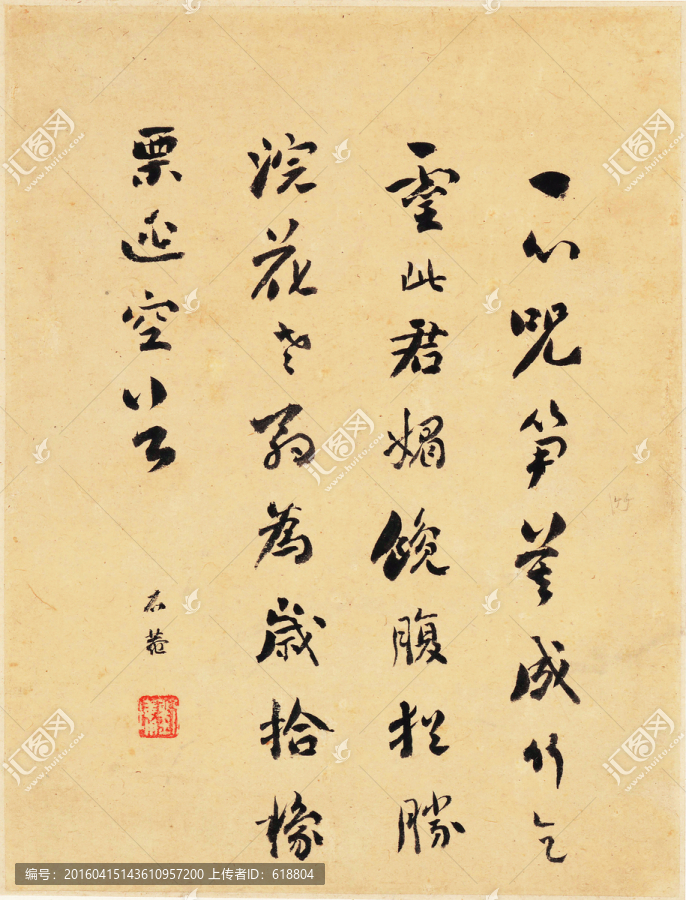 一心咒筍莫成竹乞
靈此君媚饞腹猶勝
浣花老翁為歲拾橡
栗逃空谷
石菴
汇图网
www.huitu.com
编号:20160415143610957200 上传者ID:618804